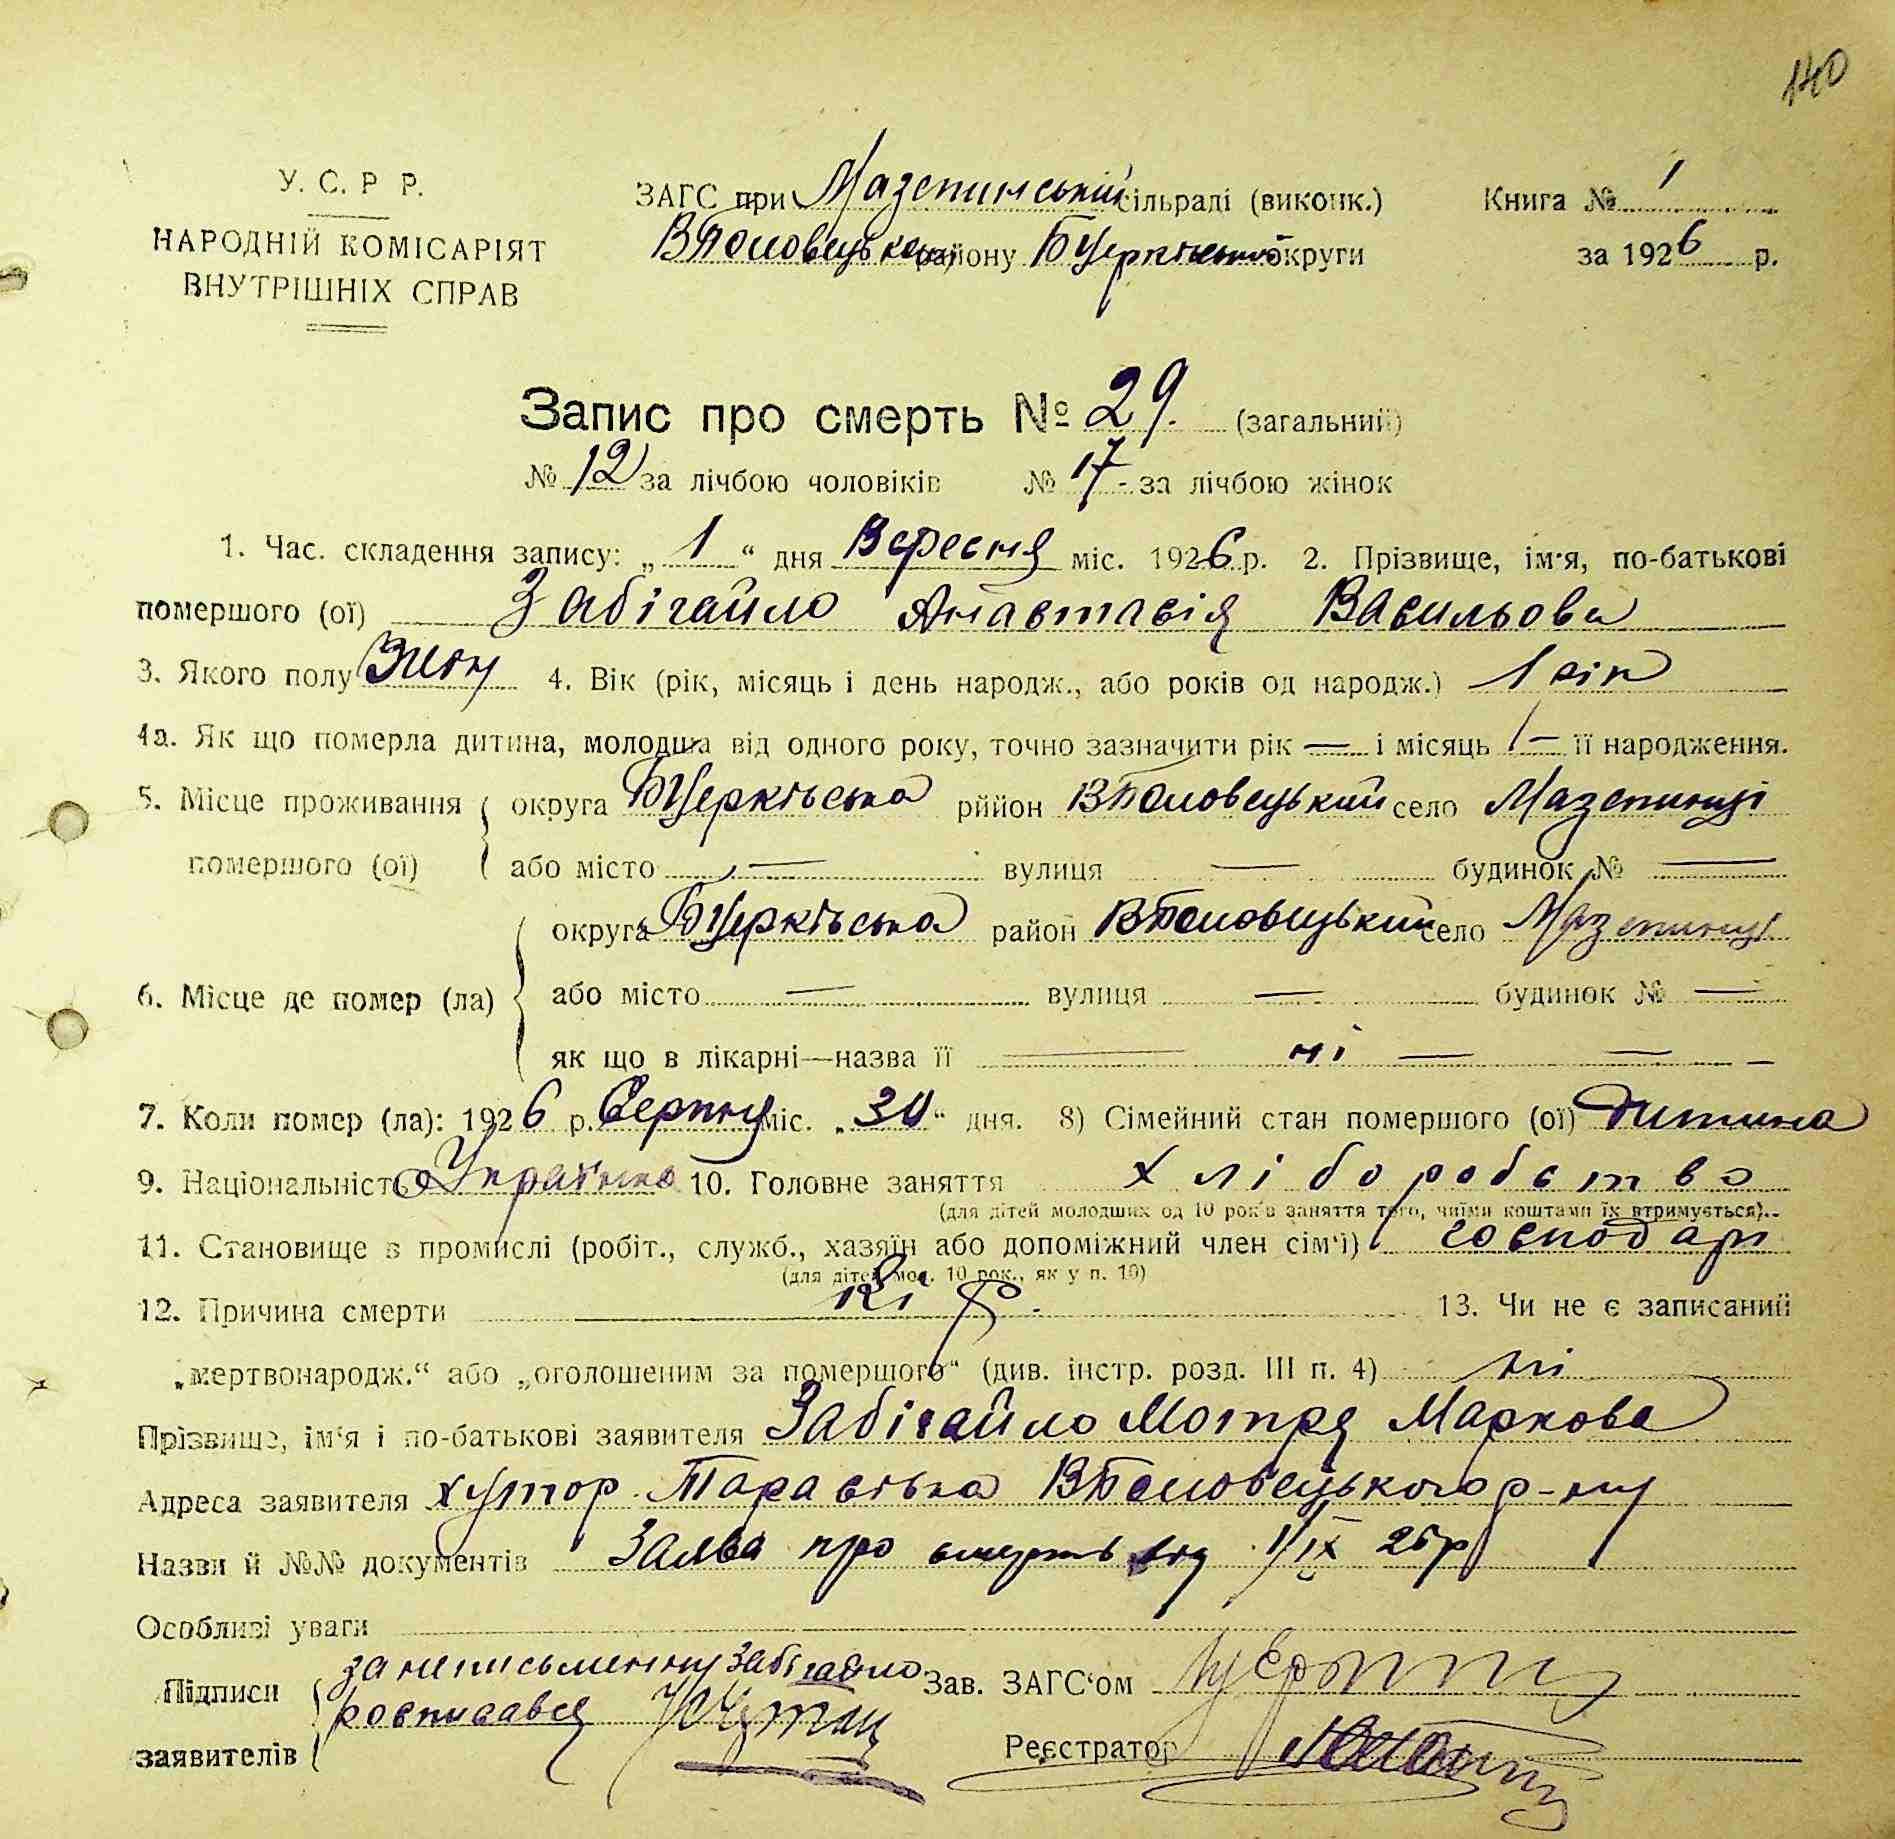 140
У. С. Р Р.
НАРОДНІЙ КОМІСАРІЯТ
ВНУТРІШНІХ СПРАВ
ЗАГС при Мазепинській сільраді (виконк.)
ВПоловецького району БЦерківської округи
Книга № 1
за 1926 р.
Запис про смерть № 29. (загальний)
№ 12 за лічбою чоловіків № 17 - за лічбою жінок
1. Час. складення запису: „ 1 “ дня Вересня міс. 1926 р. 2. Прізвище, ім'я, по-батькові
помершого (ої) Забігайло Анастасія Васильова
3. Якого полу Жін 4. Вік (рік, місяць і день народж., або років од народж.) 1 рік
4а. Як що померла дитина, молодша від одного року, точно зазначити рік — і місяць 1 — її народження.
5. Місце проживання округа БЦерківська рййон ВПоловецький село Мазепинці
помершого (ої) або місто — вулиця — будинок № —
округа БЦерківська район ВПоловецький село Мазепинці
6. Місце де помер (ла) або місто — вулиця — будинок № —
як що в лікарні—назва її — ні — — —
7. Коли помер (ла): 1926 р. Серпня міс. „30“ дня. 8) Сімейний стан помершого (ої) Дитина
9. Національність Українка 10. Головне заняття хліборобство
(для дітей молодших од 10 років заняття того, чиїми коштами їх втримується)..
11. Становище в промислі (робіт., служб., хазяїн або допоміжний член сім'ї) господарь
(для дітей мол. 10 рок., як у п. 10)
12. Причина смерти Кір. 13. Чи не є записаний
„мертвонародж.“ або „оголошеним за помершого“ (див. інстр. розд. III п. 4) ні
Прізвище, ім'я і по-батькові заявителя Забігайло Мотря Маркова
Адреса заявителя хутор Тарасівка ВПоловецького р-ну
Назви й №№ документів Заява про смерть від 1/IX 26р
Особливі уваги
Підписи за неписьменну Забігайло Зав. ЗАГС‘ом
росписався
заявителів Реєстратор